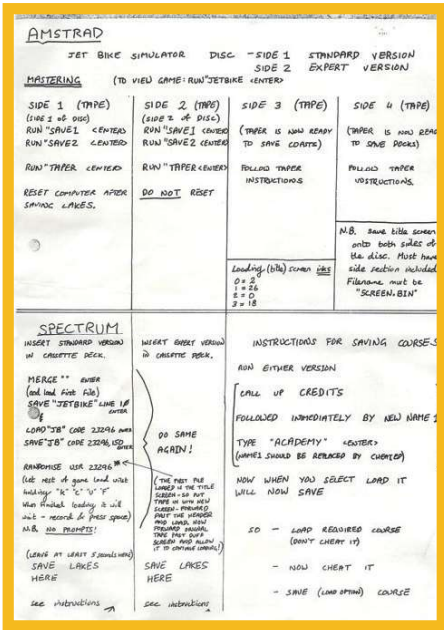 AMSTRAD
JET BIKE SIMULATOR DISC - SIDE 1 STANDARD VERSION
SIDE 2 EXPERT VERSION
MASTERING (TO VIEW GAME: RUN"JETBIKE <ENTER>
SIDE 1 (TAPE)
(SIDE 1 of DISC)
RUN "SAVE1 <ENTER>
RUN "SAVE2 <ENTER>
RUN "TAPER <ENTER>
RESET COMPUTER AFTER
SAVING LAKES.
SIDE 2 (TAPE)
(SIDE 2 of DISC)
RUN "SAVE1 <ENTER>
RUN "SAVE2 <ENTER>
RUN "TAPER <ENTER>
DO NOT RESET
SIDE 3 (TAPE)
(TAPER IS NOW READY
TO SAVE COASTS)
FOLLOW TAPER
INSTRUCTIONS
Loading (title) screen inks
0 = 2
1 = 26
2 = 0
3 = 18
SIDE 4 (TAPE)
(TAPER IS NOW READ
TO SAVE DOCKS)
FOLLOW TAPER
INSTRUCTIONS.
N.B. save title screen
onto both sides of
the disc. Must have
side section included
Filename must be
"SCREEN.BIN"
SPECTRUM
INSERT STANDARD VERSION
IN CASSETTE DECK.
MERGE "" ENTER
(and load first file)
SAVE "JETBIKE" LINE 10
ENTER
LOAD "JB" CODE 23296 ENTER
SAVE "JB" CODE 23296,150
ENTER
RANDOMISE USR 23296 *
(Let rest of game load whilst
holding "K" "C" "U" "F"
When finished loading it will
wait - record & press space)
N.B. NO PROMPTS!
(LEAVE AT LEAST 5 seconds HERE)
SAVE LAKES
HERE
see instructions
INSERT EXPERT VERSION
IN CASSETTE DECK.
DO SAME
AGAIN!
* (THE FIRST FILE
LOADED IS THE TITLE
SCREEN - SO PUT
TAPE IN WITH NEW
SCREEN - FORWARD
PAST THE HEADER
AND LOAD, NOW
FORWARD ORIGINAL
TAPE PAST OLD
SCREEN AND ALLOW
IT TO CONTINUE LOADING!)
SAVE LAKES
HERE
see instructions
INSTRUCTIONS FOR SAVING COURSES
RUN EITHER VERSION
CALL UP CREDITS
FOLLOWED IMMEDIATELY BY NEW NAME 1
TYPE "ACADEMY" <ENTER>
(NAME1 SHOULD BE REPLACED BY CHEATED)
NOW WHEN YOU SELECT LOAD IT
WILL NOW SAVE
SO - LOAD REQUIRED COURSE
(DON'T CHEAT IT)
- NOW CHEAT IT
- SAVE (LOAD OPTION) COURSE